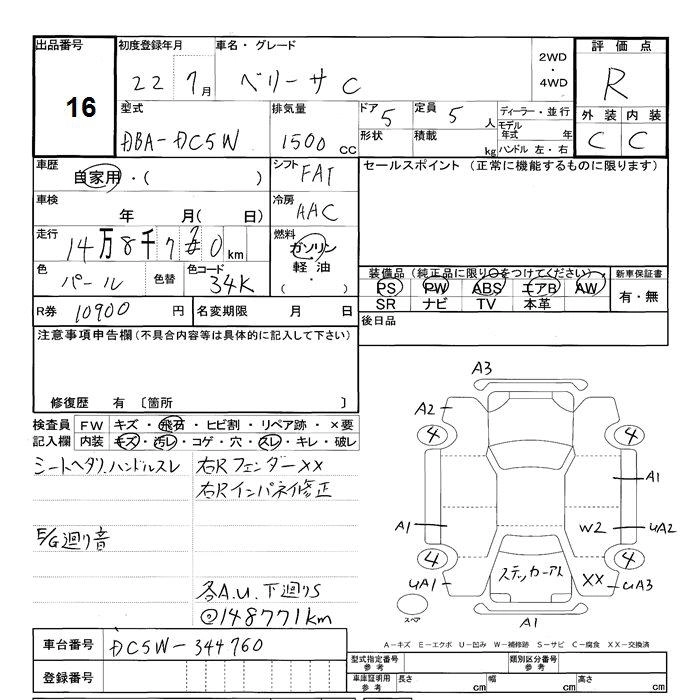 出品番号 初度登録年月 車名・グレード 評価点
16 22 7月 ベリーサ C 2WD・4WD R
型式 排気量 ドア 5 定員 5人 ディーラー・並行 外装 内装
DBA-DC5W 1500cc 形状 積載 kg モデル年式 年 ハンドル 左・右 C C
車歴 自家用・( ) シフト FAT セールスポイント(正常に機能するものに限ります)
車検 年 月( 日) 冷房 AAC
走行 14万8千7 0km 燃料 ガソリン 軽油 ( ・ )
色 パール 色替 色コード 34K 装備品(純正品に限り○をつけてください) 新車保証書
PS PW ABS エアB AW 有・無
SR ナビ TV 本革
R券 10900円 名変期限 月 日 後日品
注意事項申告欄(不具合内容等は具体的に記入して下さい)
修復歴 有 〔箇所 〕
検査員 FW キズ・飛石・ヒビ割・リペア跡・×要
記入欄 内装 キズ・汚レ・コゲ・穴・スレ・キレ・破レ
シートヘタリ、ハンドルスレ 右Rフェンダー××
右Rインパネイ修正
E/G廻り音
各A.U.下廻りS
◎148771km
A3
A2
4 4
A1
A1 W2 UA2
4 4
UA1 ステッカーアト XX UA3
スペア A1
A-キズ E-エクボ U-凹み W-補修跡 S-サビ C-腐食 XX-交換済
車台番号 DC5W-344760
登録番号
型式指定番号 参考 類別区分番号 参考
車庫証明用 参考 長さ cm 幅 cm 高さ cm